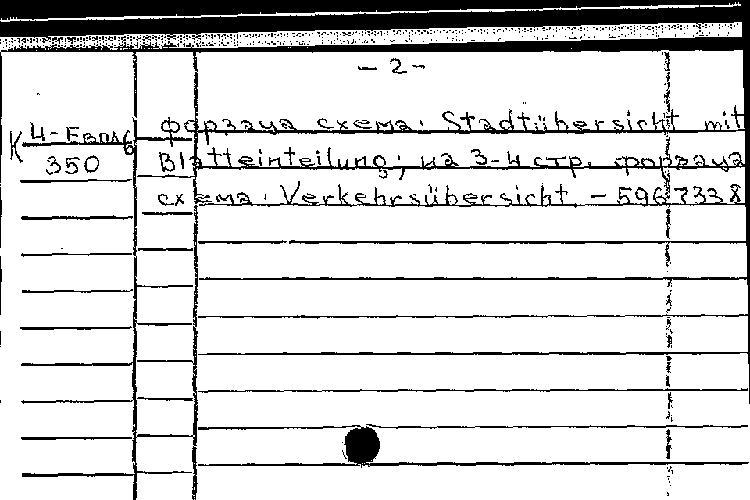 - 2 -
К Ч-Евол6
350
форзаца схема: Stadtübersicht mit
Blatteinteilung; на 3-4 стр. форзаца
схема: Verkehrsübersicht. - 5967338